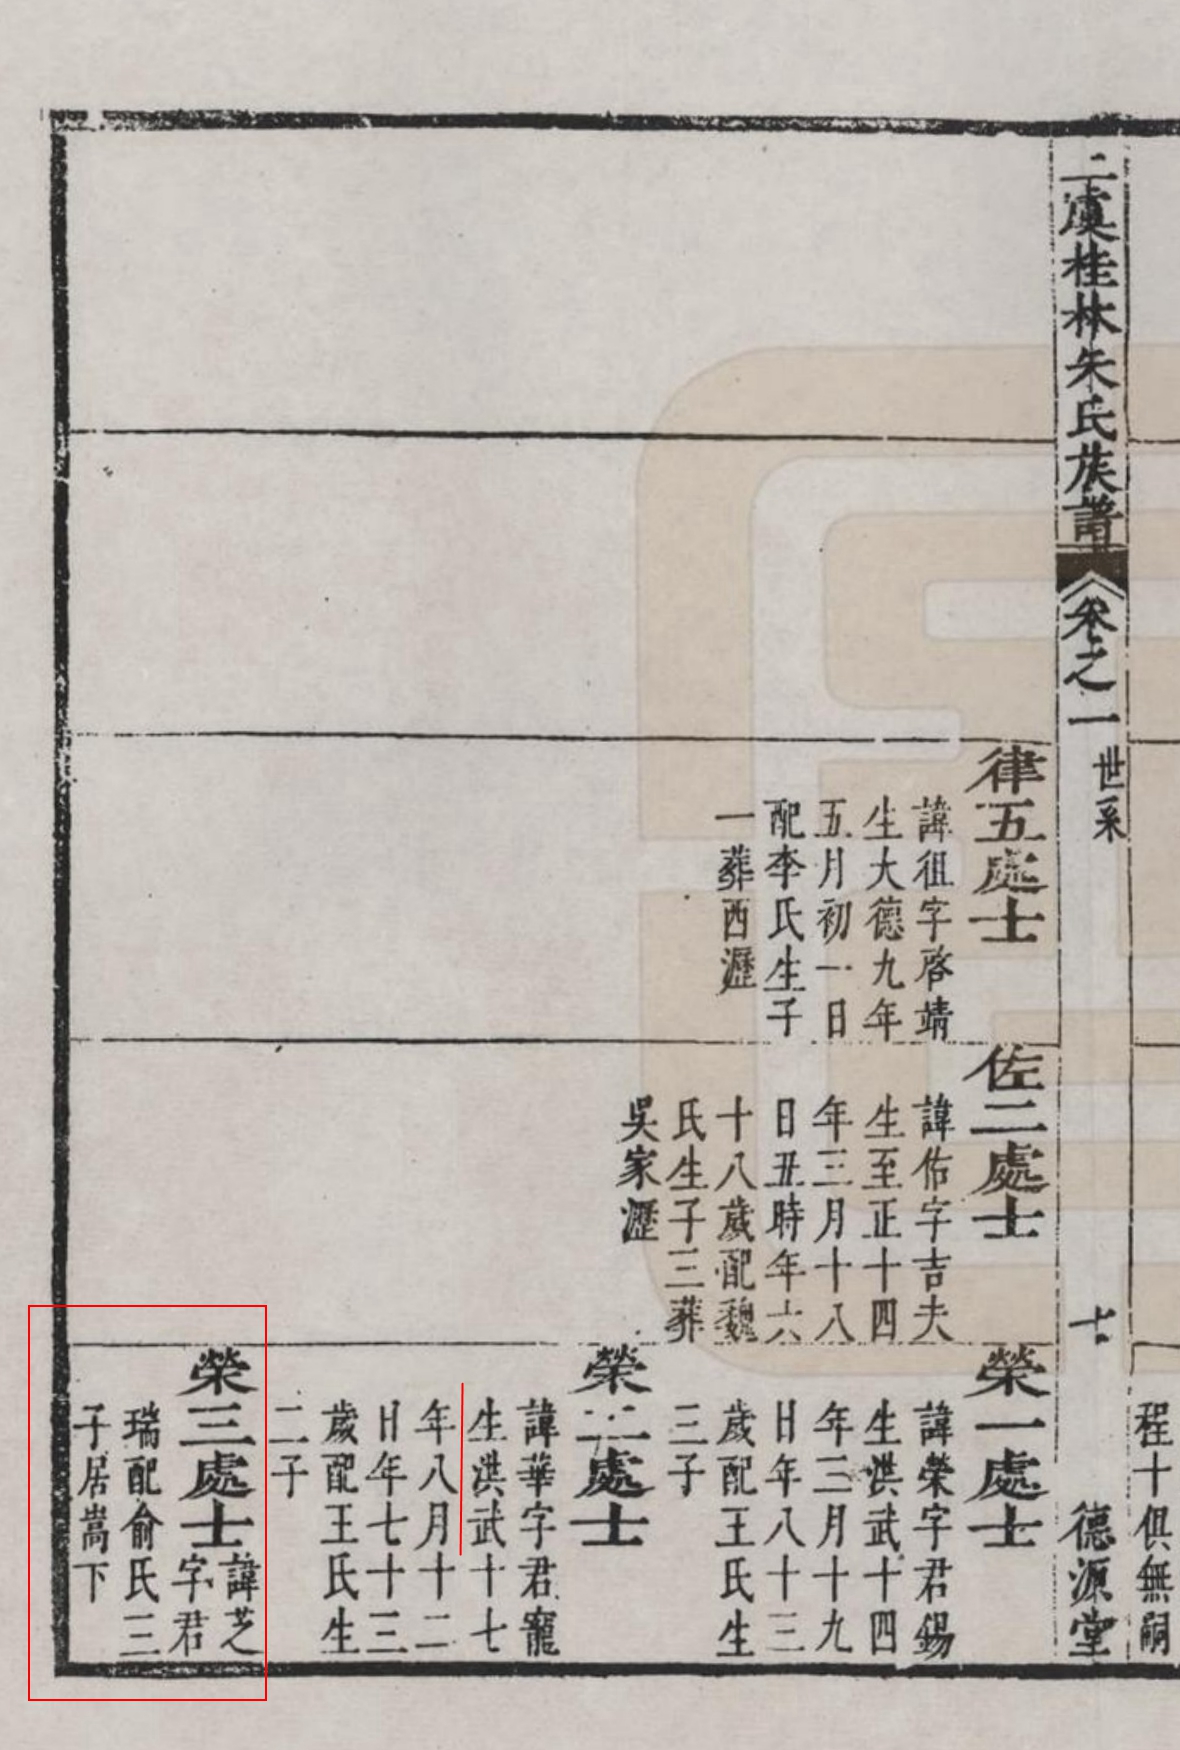 程十俱無嗣
二虞桂林朱氏族譜
卷之一
世系
十
德源堂
律五處士
諱徂字啓靖
生大德九年
五月初一日
配李氏生子
一葬西瀝
佐二處士
諱佑字吉夫
生至正十四
年三月十八
日丑時年六
十八歲配魏
氏生子三葬
吳家瀝
榮一處士
諱榮字君錫
生洪武十四
年三月十九
日年八十三
歲配王氏生
三子
榮二處士
諱華字君寵
生洪武十七
年八月十二
日年七十三
歲配王氏生
二子
榮三處士
諱芝
字君
瑞配俞氏三
子居嵩下